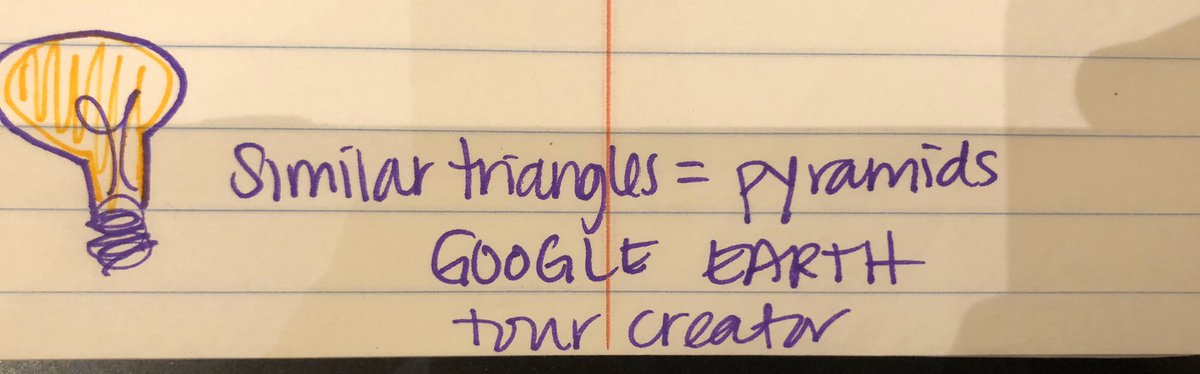 Similar triangles = pyramids
GOOGLE EARTH
tour creator